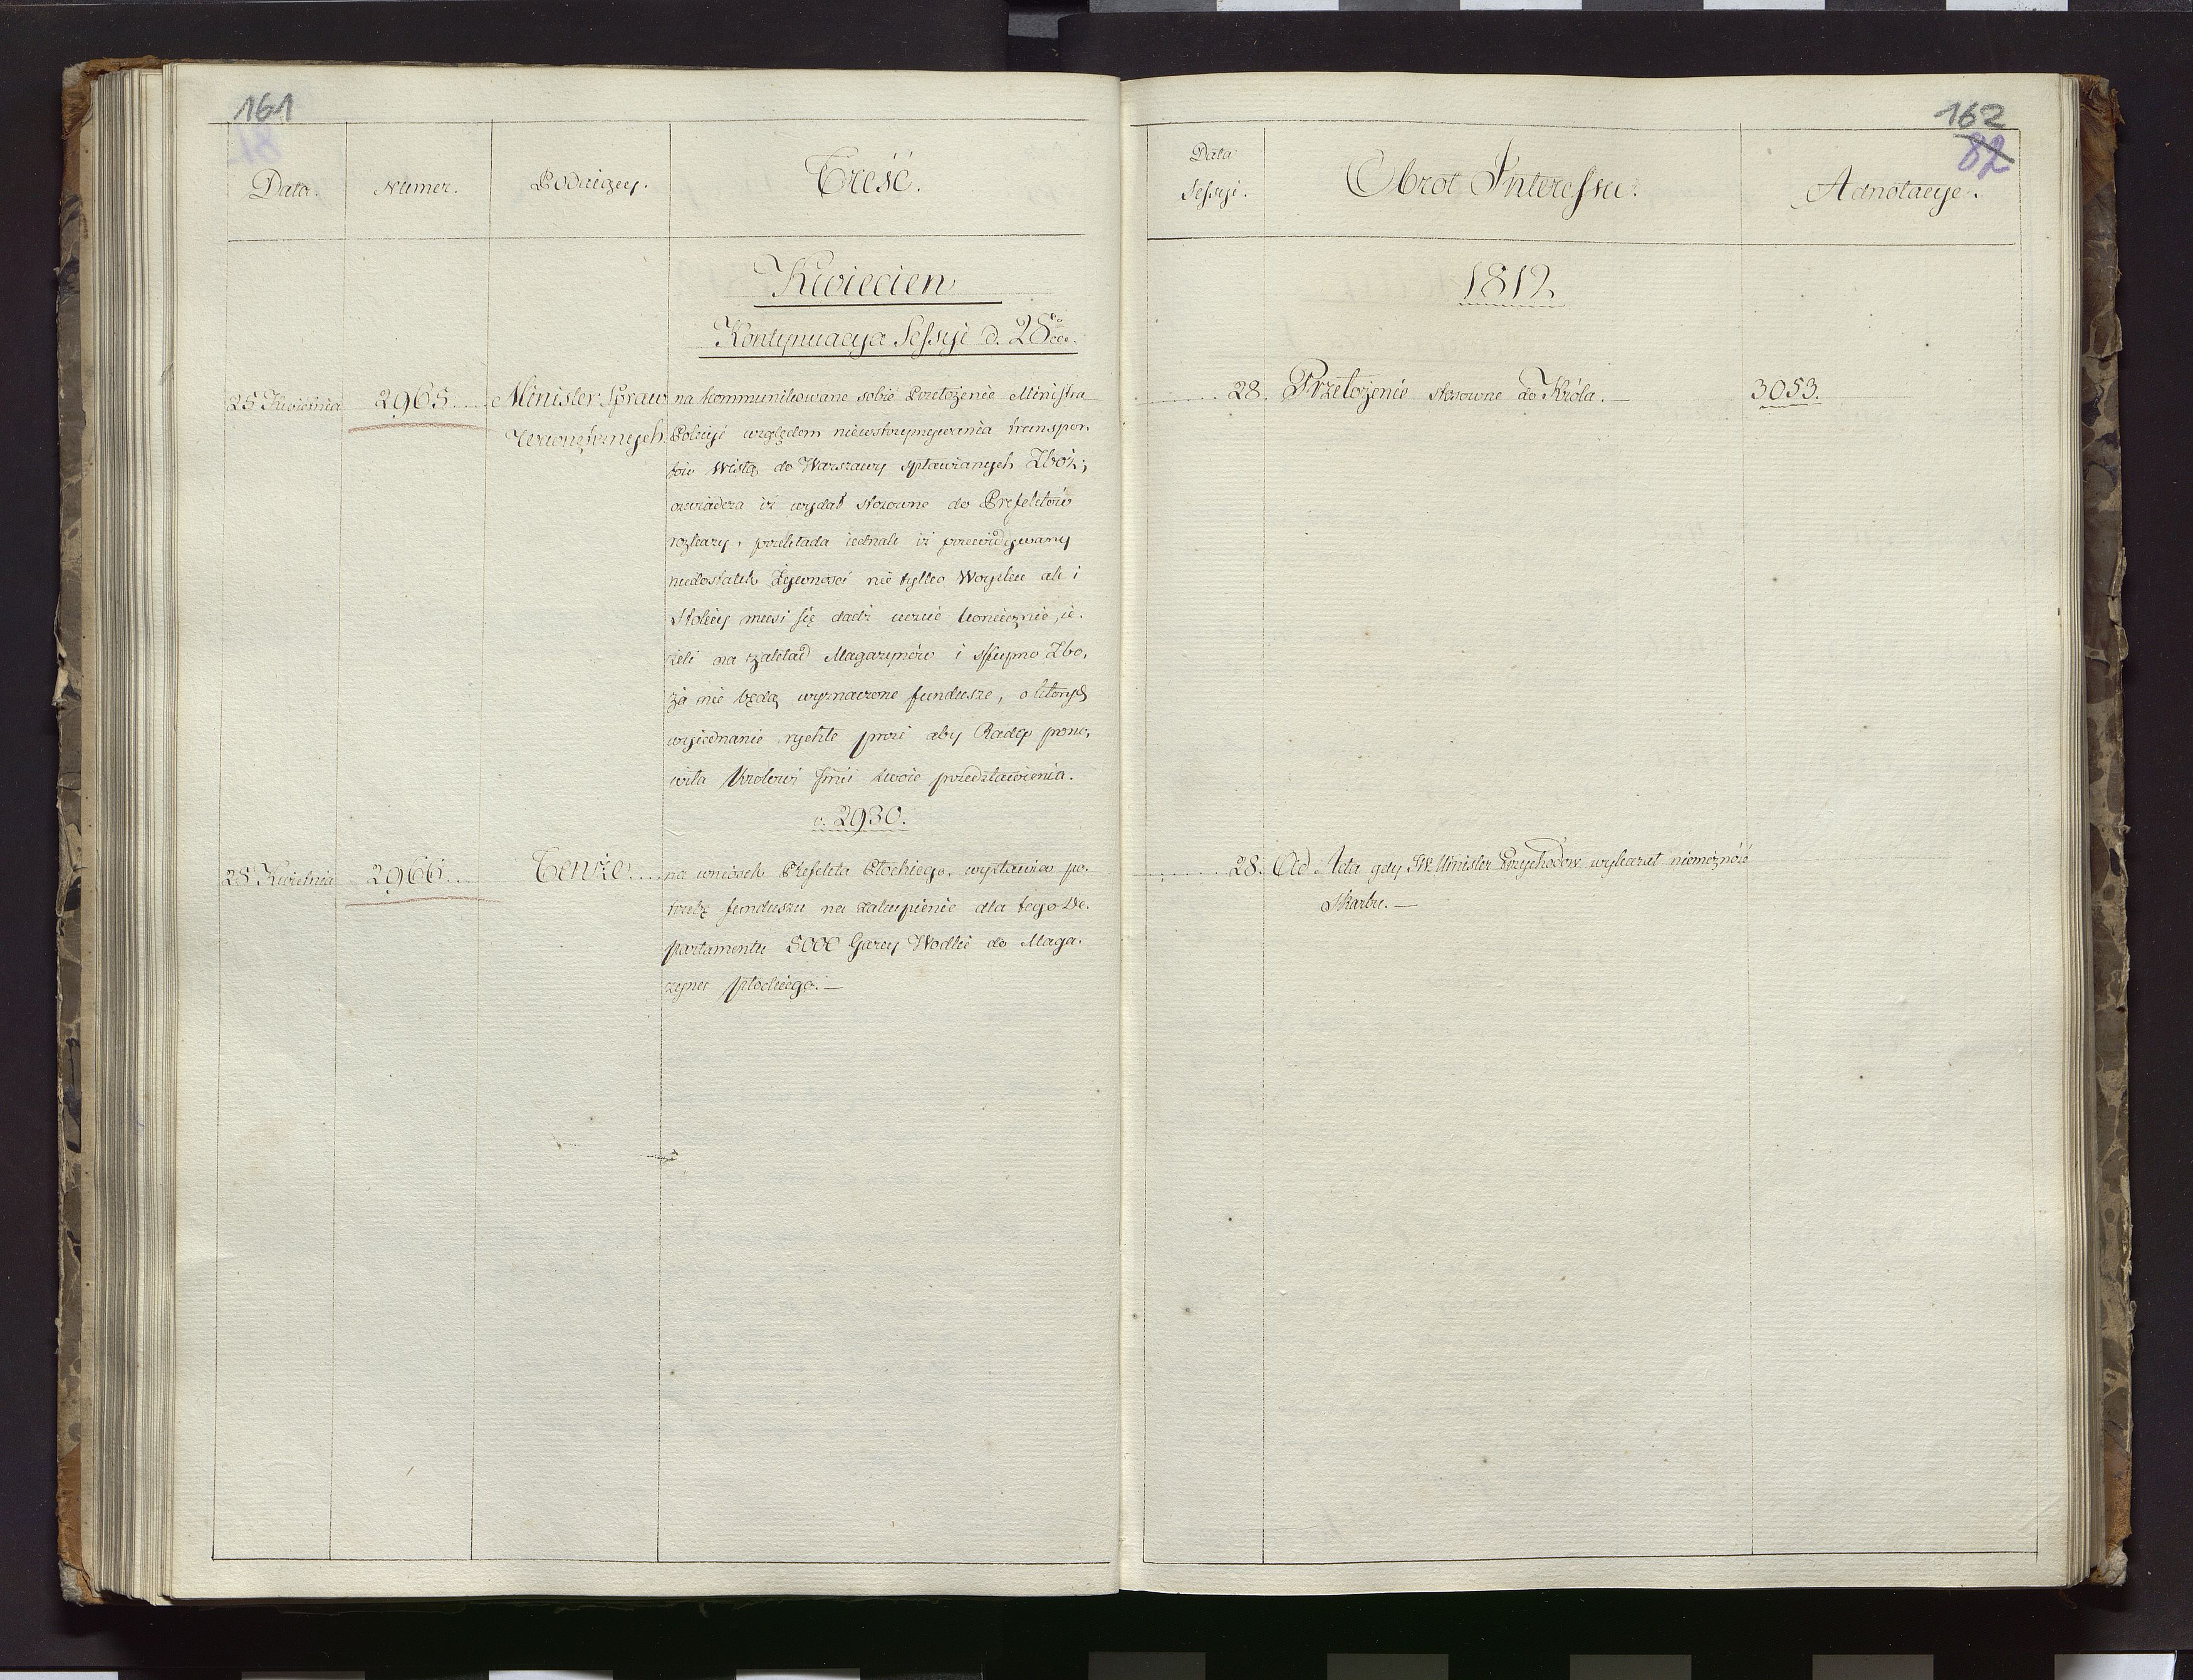 161
Data.
Numer.
Podaiący.
Treść.
Kwiecien
Kontynuacya Sessyi d. 28
25 Kwietnia
2965
Minister Spraw
Wewnętrznych
na kommunikowane sobie Przełożenie Ministra
Policyi względem niewstrzymywania transpor-
tow Wisłą do Warszawy spławianych Zboż;
oswiadcza iż wydał stosowne do Prefektów
rozkazy, przekłada iednak iż przewidywany
niedostatek Żywności nie tylko Woysku ale i
Stolicy musi się dadź uczuć koniecznie, ie-
żeli na zakład Magazynów i skupno Zbo-
ża nie będą wyznaczone fundusze, o których
wyiednanie rychłe prosi aby Rada pono-
wiła Krolowi Jmci swoie przedstawienia.
v. 2930.
28 Kwietnia
2966
Tenże
na wniosek Prefekta Płockiego, wystawia po-
trzebę funduszu na zakupienie dla tego De-
partamentu 5000 Garcy Wodki do Maga-
zynu płockiego.—
162
82
Data
Sessyi.
Obrot Interessu.
Adnotacye.
1812
28. Przełożenie stosowne do Króla.—
3053.
28. Ad Acta gdy JW Minister Przychodow wykazał niemożność
Skarbu.—